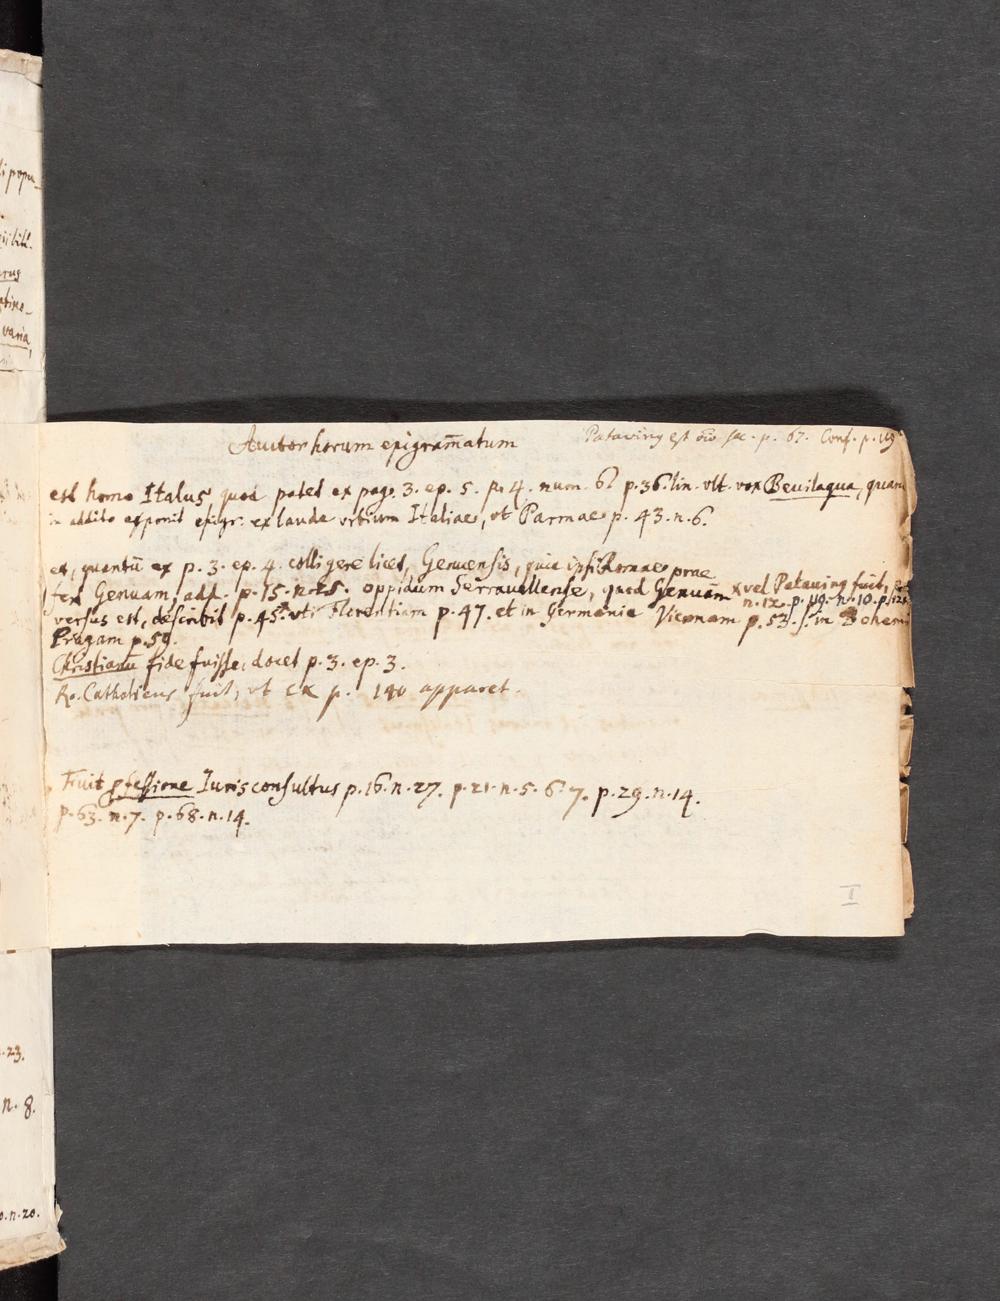 i popu-
varia,
Autor horum epigram̄atum
Patavinq est p. 67. Conf. p. 119
est homo Italus quod patet ex pag. 3. ep. 5. p. 4. num. 6. p. 36. lin. vlt. vox Bevilaqua, quam
in addito exponit epigr. ex laude vrbium Italiae, vt Parmae p. 43. n. 6.
et, quantū ex p. 3. ep. 4. colligere licet, Genuensis, quia ipsi prae
Genuam add. p. 15. oppidum Serravallense, quod Genuam x vel Patavinq fuit,
n. 12. p. 119. n. 10. p. 121
versus est, describit p. 45. vti Florentiam p. 47. et in Germania Viennam p. 53. in Bohem
Pragam p. 59.
Christianū fide fuisse, docet p. 3. ep. 3.
Ro. Catholicus fuit, vt ex p. 140 apparet.
Fuit pfessione Iurisconsultus p. 16. n. 27. p. 21. n. 5. 6. 7. p. 29. n. 14.
p. 63. n. 7. p. 68. n. 14.
I
. 23.
n. 8.
n. 20.